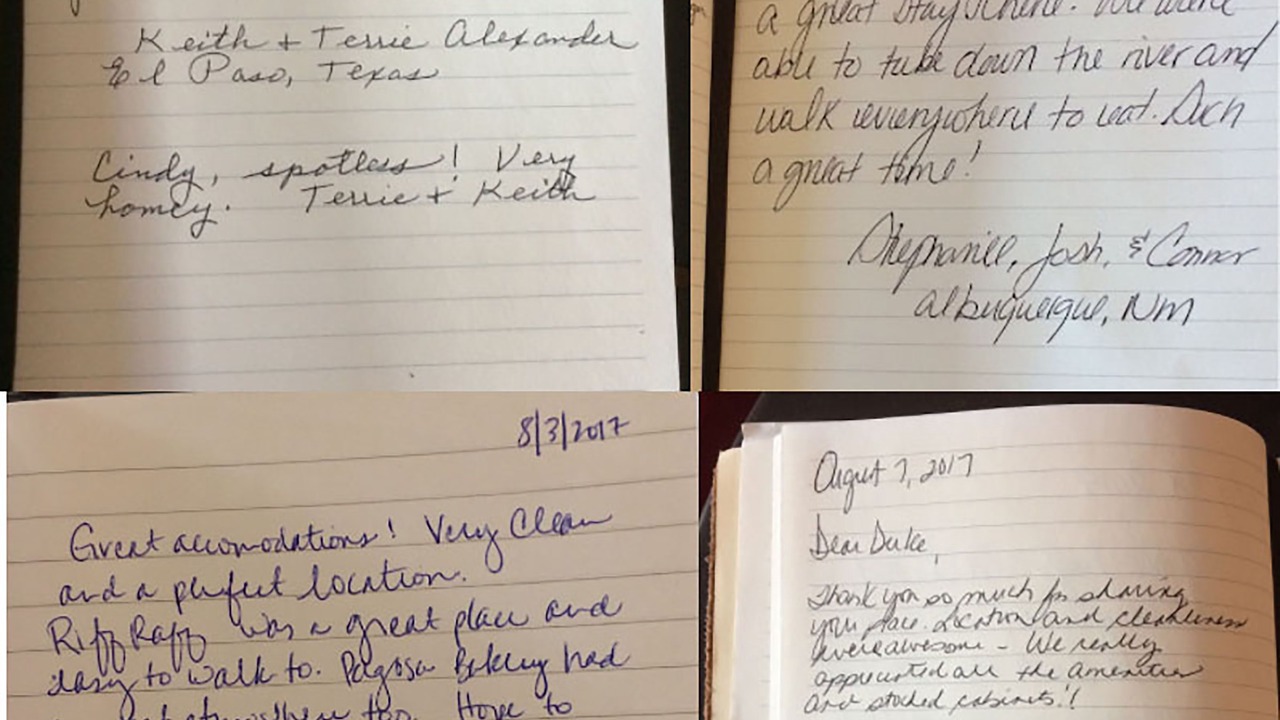 Keith + Terrie Alexander
El Paso, Texas
Cindy, spotless! Very
homey. Terrie + Keith
a great stay here. We were
able to tube down the river and
walk everywhere to eat. Such
a great time!
Stephanie, Josh, & Connor
Albuquerque, NM
8/3/2017
Great accomodations! Very Clean
and a perfect location.
Riff Raff was a great place and
easy to walk to. Pagosa Bakery had
too. Hope to
August 7, 2017
Dear Duke,
Thank you so much for sharing
your place. Location and cleanliness
were awesome - We really
appreciated all the amenities
and stocked cabinets!!